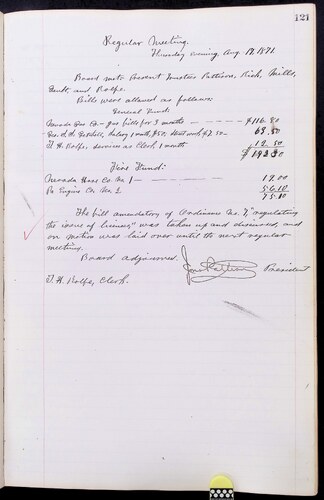 121
Regular Meeting.
Thursday evening, Aug. 17, 1871.
Board met. Present Trustees Pattison, Rich, Mills,
and Rolfe.
Bills were allowed as follows:
General Fund:
Nevada Gas Co. – gas bills for 3 months – $116.80
Geo. A. salary 1 month, $50; work $ .50 –
T. H. Rolfe, services as Clerk 1 month 12.50
Fire Fund:
Nevada Hose Co. No. 1 — 19.00
Pa. Engine Co. No. 2. 56.10
75.10
The bill amendatory of Ordinance No. 7, "regulating
the issue of licenses" was taken up and discussed, and
on motion was laid over until the next regular
meeting.
Board adjourned.
President
T. H. Rolfe, Clerk.